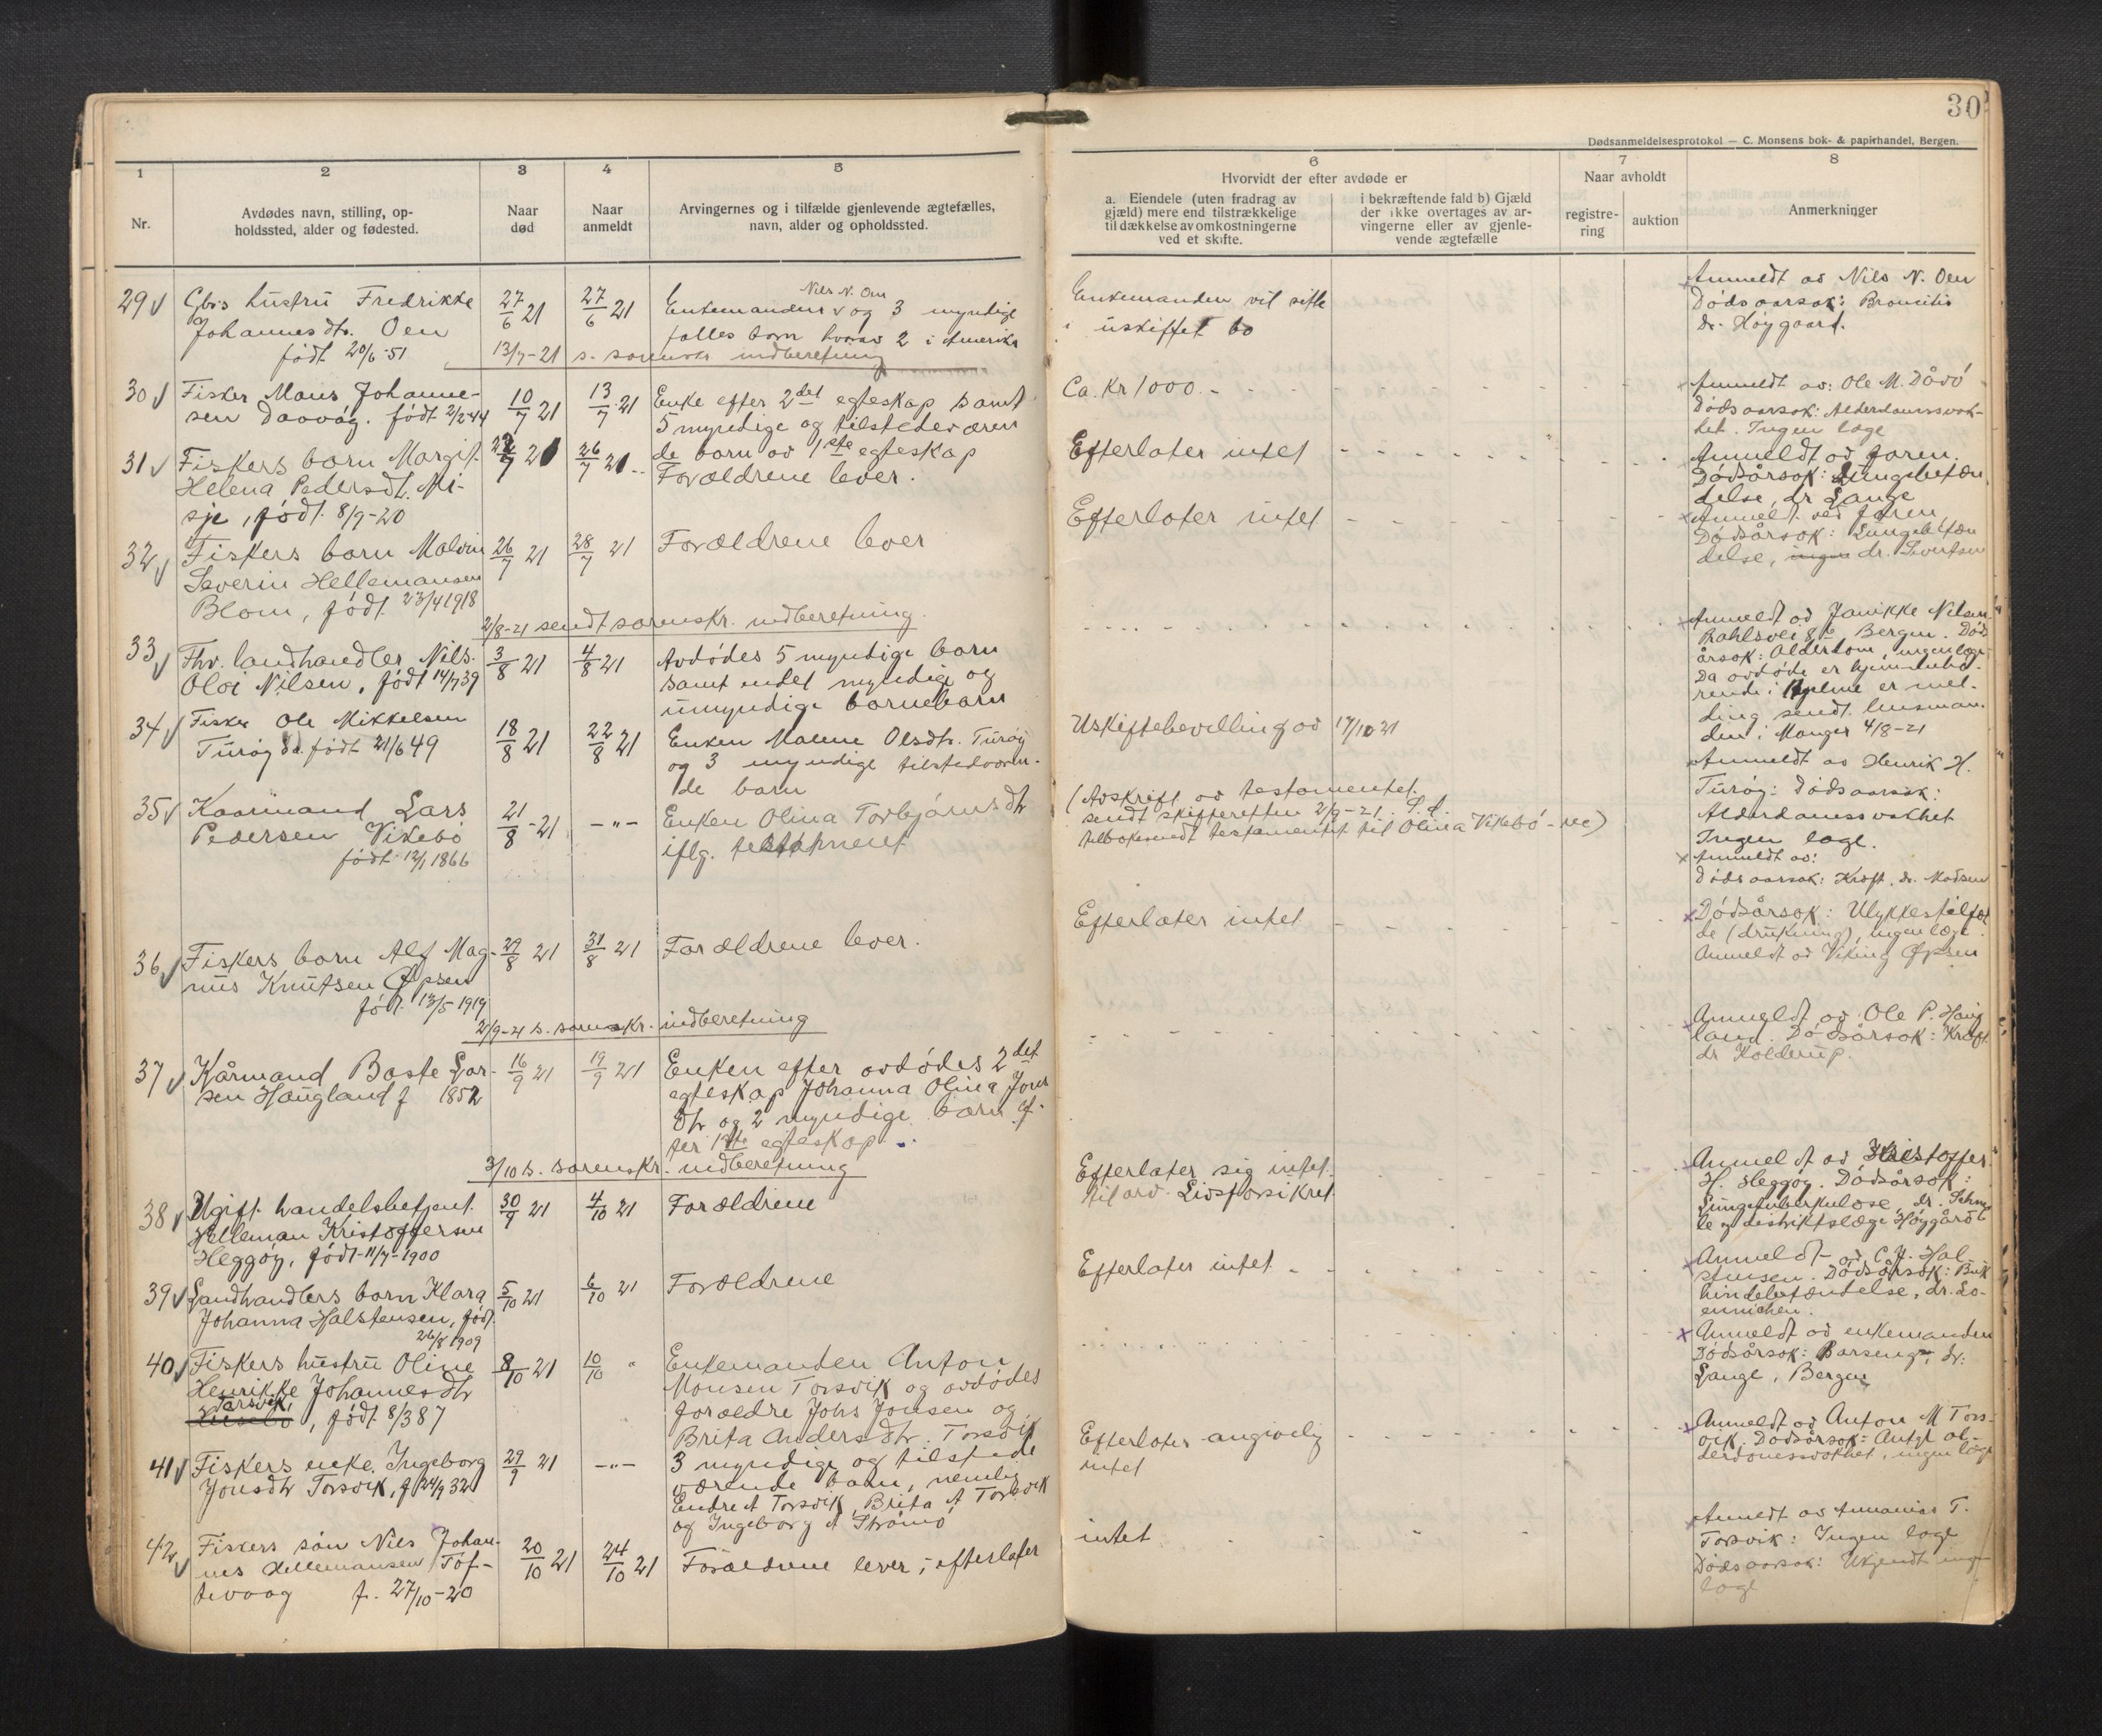 30
Dødsanmeldelsesprotokol — C. Monsens bok- & papirhandel, Bergen.
1
2
3
4
5
Nr.
Avdødes navn, stilling, op-
holdssted, alder og fødested.
Naar
død
Naar
anmeldt
Arvingernes og i tilfælde gjenlevende ægtefælles,
navn, alder og opholdssted.
6
7
8
Hvorvidt der efter avdøde er
a. Eiendele (uten fradrag av
gjæld) mere end tilstrækkelige
til dækkelse av omkostningerne
ved et skifte.
i bekræftende fald b) Gjæld
der ikke overtages av ar-
vingerne eller av gjenle-
vende ægtefælle
Naar avholdt
registre-
ring
auktion
Anmerkninger
29 Gbrs hustru Fredrikke
Johannesdtr. Oen
født 20/6 51
27/6 21
27/6 21
Nils N. Oen
Enkemanden og 3 myndige
fælles barn hvorav 2 i Amerika
Enkemanden vil sitte
i uskiftet bo
Anmeldt av Nils N. Oen
Dødsaarsak: Broncitis
dr. Høygaard.
13/7-21 s. sorenskr indberetning
30 Fisker Mons Johanne-
sen Daavøy. født 2/2 44
10/7 21
13/7 21
Enke efter 2det egteskap samt
5 myndige og tilstedeværen
de barn av 1ste egteskap
Ca. Kr 1000.-
Anmeldt av: Ole M. Dåvø
Dødsaarsak: Alderdomssvak-
het. Ingen læge
31 Fiskers barn Margit
Helena Pedersdt. Mi-
sje, født 8/9-20
/7 21
26/7 21
Forældrene lever.
Efterlater intet
Anmeldt av faren.
Dødsårsak: Lungebetæn
delse, dr Lange
32 Fiskers barn Malvin
Severin Hellemansen
Blom, født 23/4 1918
26/7 21
28/7 21
Forældrene lever
Efterlater intet
Anmeldt ved faren
Dødsårsak: Lungebetæn
delse, ingen dr. Sivertsen
2/8-21 sendt sorenskr. indberetning
33 Fhv. landhandler Nils
Oloi Nilsen, født 14/7 39
3/8 21
4/8 21
Avdødes 5 myndige barn
samt endel myndige og
umyndige barnebarn
Anmeldt av Janikke Nilsen
Bergen. Død
årsak: Alderdom, ingen læge
Da avdøde er hjemmehø-
rende i Hjelme er mel-
ding sendt lensman-
den i Manger 4/8-21
34 Fisker Ole Mikkelsen
Turøy født 21/6 49
18/8 21
22/8 21
Enken Malene Olsdtr. Turøy
og 3 myndige tilstedeværen-
de barn
Uskiftebevilling av 17/10 21
Anmeldt av Henrik H.
Turøy: Dødsaarsak:
Alderdomssvakhet
Ingen læge.
35 Kaarmand Lars
Pedersen Vikebø
født 12/1 1866
21/8-21
-"-
Enken Olina Torbjørnsdtr
iflg. testament
(Avskrift av testamentet
sendt skifteretten 2/9-21.
tilbakesendt testamentet til Olina Vikebø - )
Anmeldt av:
Dødsaarsak: Kræft. dr. Madsen
36 Fiskers barn Alf Mag-
nus Knutsen Øpsen
født 13/5 1919
29/8 21
31/8 21
Forældrene lever.
Efterlater intet
Dødsårsak: Ulykkestilfæl
de (drukning), ingen læge.
Anmeldt av Viking Øpsen
2/9-21 s. sorenskr. indberetning
37 Kårmand Baste Lar-
sen Haugland f 1852
16/9 21
19/9 21
Enken efter avdødes 2det
egteskap Johanna Olina Jons
dtr og 2 myndige barn ef-
ter 1ste egteskap.
Anmeldt av Ole P. Haug
land. Dødsårsak: Kræft
dr Kolderup.
3/10 s. sorenskr. indberetning
38 Ugift handelsbetjent
Helleman Kristoffersen
Heggøy, født 11/7-1900
30/9 21
4/10 21
Forældrene
Efterlater sig intet.
Livsforsikret
Anmeldt av Kristoffer
H. Heggøy. Dødsårsak:
Lungetuberkulose, dr.
og distriktslæge Høygård
39 Landhandlers barn Klara
Johanna Halstensen, født
26/8 1909
5/10 21
6/10 21
Forældrene
Efterlater intet
Anmeldt av C. J. Hal-
stensen. Dødsårsak: Buk
hindebetændelse, dr. Lo-
ennichen.
40 Fiskers hustru Oline
Henrikke Johannesdtr
Torsvik, født 8/3 87
8/10 21
10/10 "
Enkemanden Anton
Monsen Torsvik og avdødes
forældre Johs Jonsen og
Brita Andersdtr. Torsvik
Anmeldt av enkemanden
Dødsårsak: Barseng, dr.
Lange, Bergen
41 Fiskers enke Ingeborg
Jonsdtr Torsvik, f 24/9 32
29/9 21
-"-
3 myndige og tilstede
værende barn, nemlig
Endre A Torsvik, Brita A Torsvik
og Ingeborg A Strømø
Efterlater angivelig
intet
Anmeldt av Anton M Tors-
vik. Dødsårsak: Antgl al-
derdomssvakhet, ingen læge
42 Fiskers søn Nils Johan-
nes Hellemansen Tof-
tevaag f. 27/10-20
20/10 21
24/10 21
Forældrene lever; efterlater
intet
Anmeldt av Annanias T.
Torsvik: Ingen læge
Dødsaarsak: Ukjendt ingen
læge